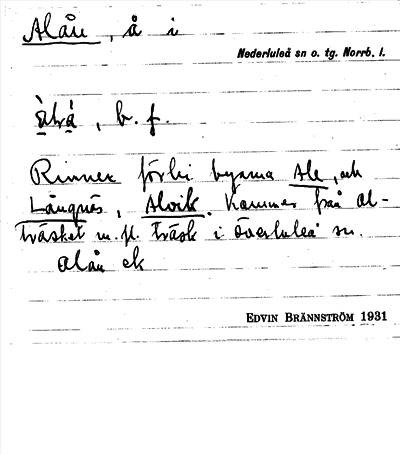 Alån, å i
Nederluleå sn o. tg. Norrb. l.
b. f.
Rinner förbi byarna Ale, och
Långnäs, Alvik. Kommer från Al-
träsket m. fl. träsk i Överluleå sn.
Alån ek
EDVIN BRÄNNSTRÖM 1931